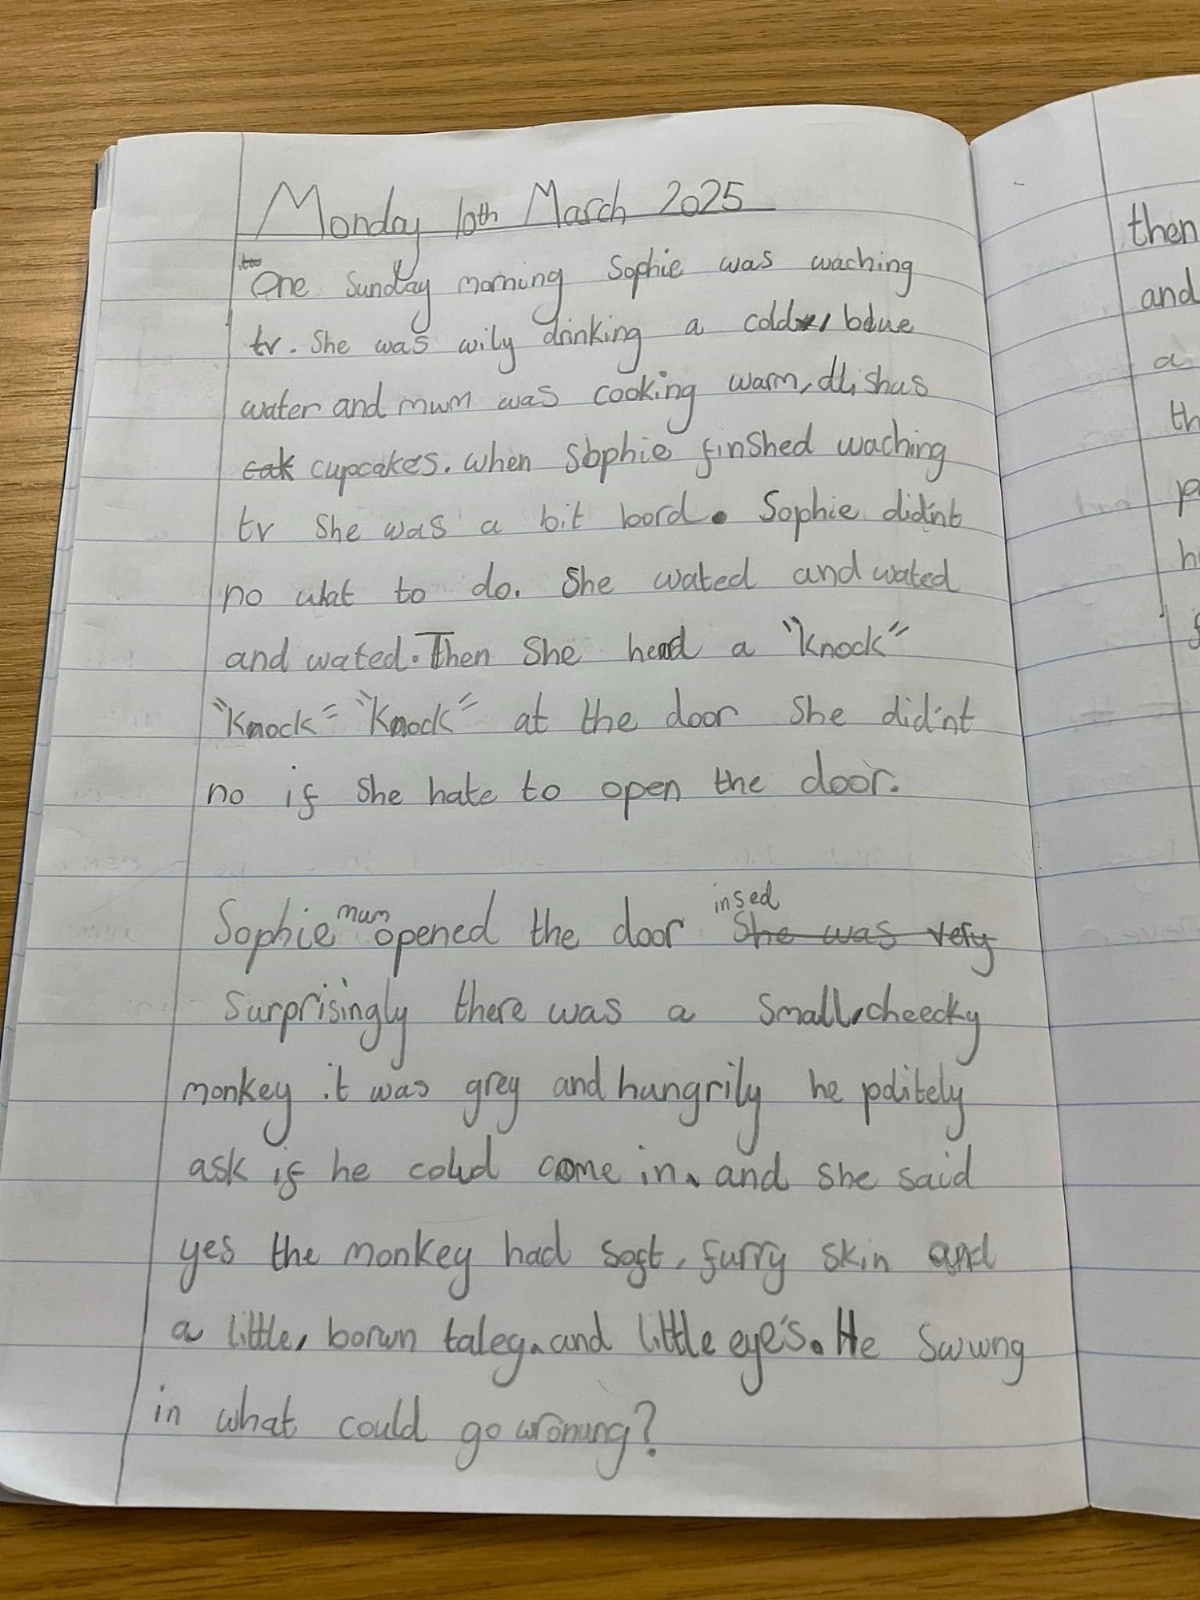 Monday 10th March 2025
One Sunday morning Sophie was waching
tv. She was wily drinking a cold, blue
water and mum was cooking warm, dlishas
cak cupcakes. when Sophie finshed waching
tv She was a bit bord. Sophie didint
no wat to do. She wated and wated
and wated. Then She heard a "knock"
"Knock" "Knock" at the door She did'nt
no if She hate to open the door.
Sophie mum opened the door insed She was very
Surprisingly there was a Small, cheecky
monkey it was grey and hungrily he politely
ask if he cold come in, and she said
yes the monkey had soft, furry skin and
a little, borwn taley, and little eye's. He Swwng
in what could go wronung?
then
and
a
th
p
h